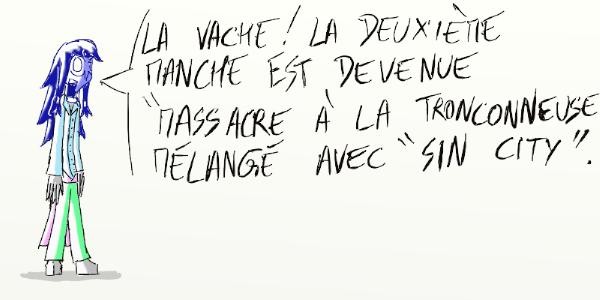 LA VACHE! LA DEUXIÈME
MANCHE EST DEVENUE
"MASSACRE À LA TRONCONNEUSE
MÉLANGÉ AVEC "SIN CITY".